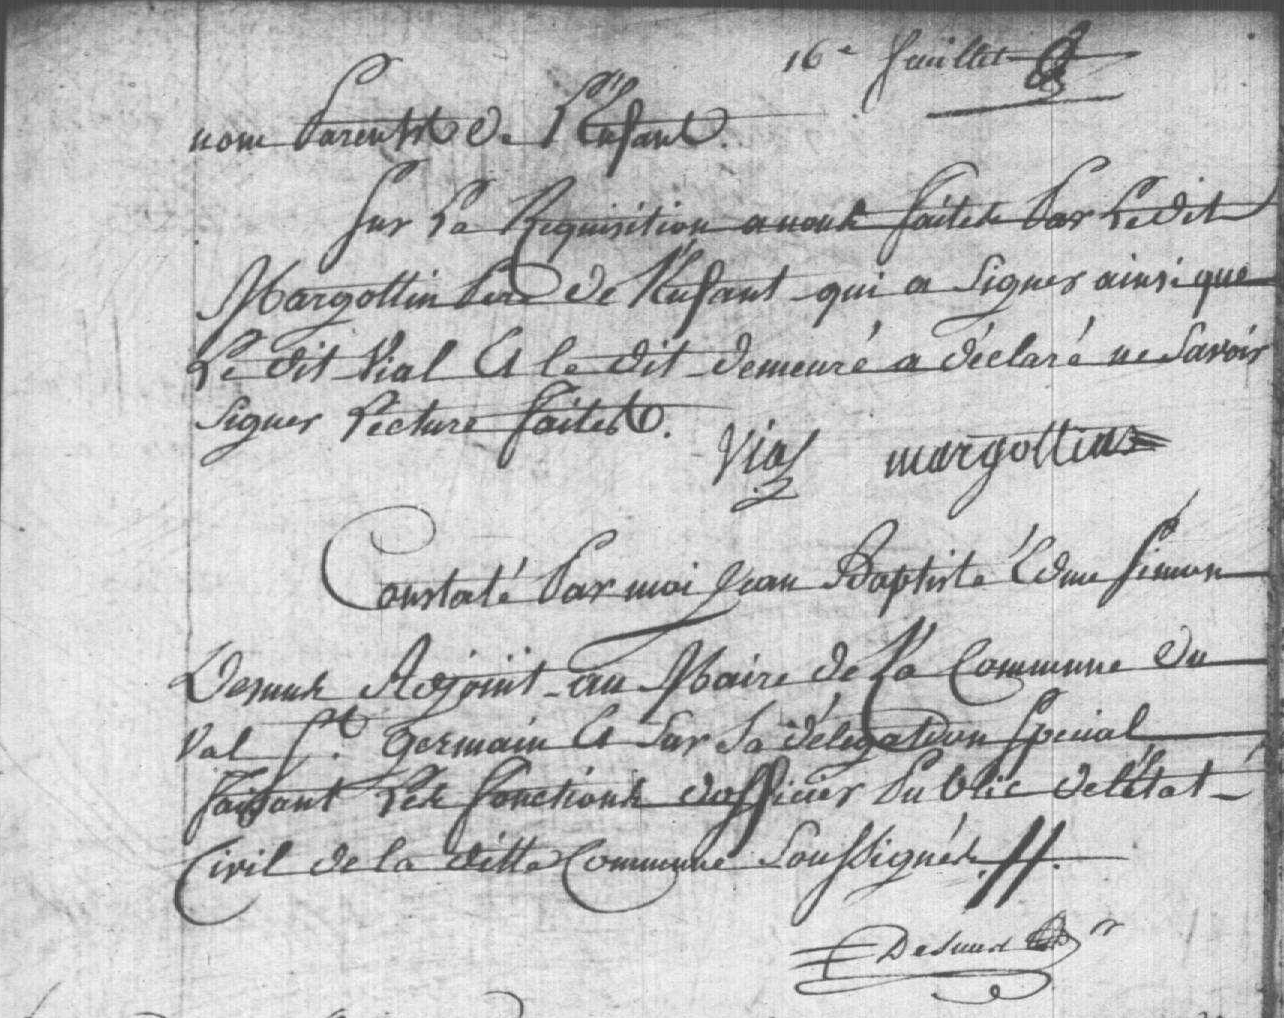 16e Juillet
nom Parents de L'Enfant.
Sur La Requisition a nous faites Par Ledit
Margottin Pere de L'enfant qui a Signer ainsi que
Le dit Vial Et le dit demeuré a déclaré ne Savoir
Signer Lecture faites.
Vial margottin
Constaté Par moi Jean Baptiste Edme Simon
Adjoint au Maire de La Commune du
Val St. Germain Et Sur Sa délégation Special
faisant Les fonctions d'officier Public de L'état
Civil de la ditte Commune Soussignés.